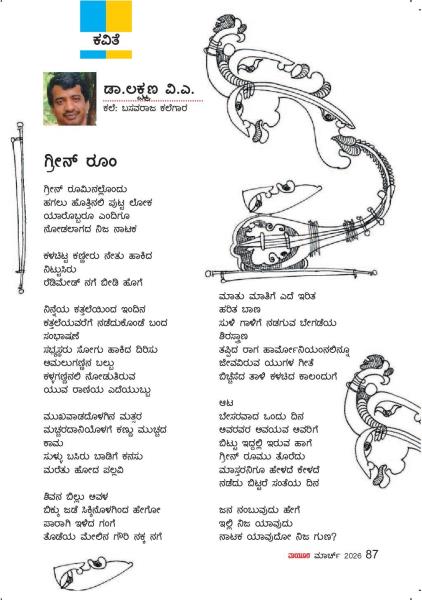 ಕವಿತೆ
ಡಾ.ಲಕ್ಷ್ಮಣ ವಿ.ಎ.
ಕಲೆ: ಬಸವರಾಜ ಕಲೆಗಾರ
ಗ್ರೀನ್ ರೂಂ
ಗ್ರೀನ್ ರೂಮಿನಲ್ಲೊಂದು
ಹಗಲು ಹೊತ್ತಿನಲಿ ಪುಟ್ಟ ಲೋಕ
ಯಾರೊಬ್ಬರೂ ಎಂದಿಗೂ
ನೋಡಲಾಗದ ನಿಜ ನಾಟಕ
ಕಳಚಿಟ್ಟ ಕಣ್ಣೀರು ನೇತು ಹಾಕಿದ
ನಿಟ್ಟುಸಿರು
ರೆಡಿಮೇಡ್ ನಗೆ ಬೀಡಿ ಹೊಗೆ
ನಿನ್ನೆಯ ಕತ್ತಲೆಯಿಂದ ಇಂದಿನ
ಕತ್ತಲೆಯವರೆಗೆ ನಡೆದುಕೊಂಡೆ ಬಂದ
ಸಂಭಾಷಣೆ
ಸಭ್ಯಸ್ಥರು ಸೋಗು ಹಾಕಿದ ದಿರಿಸು
ಅಮಲುಗಣ್ಣಿನ ಬಲ್ಬು
ಕಳ್ಳಗಣ್ಣಿನಲಿ ನೋಡುತಿರುವ
ಯುವ ರಾಣಿಯ ಎದೆಯುಬ್ಬು
ಮುಖವಾಡದೊಳಗಿನ ಮತ್ಸರ
ಮಚ್ಚರದಾನಿಯೊಳಗೆ ಕಣ್ಣು ಮುಚ್ಚದ
ಕಾಮ
ಸುಳ್ಳು ಬಸಿರು ಬಾಡಿಗೆ ಕನಸು
ಮರೆತು ಹೋದ ಪಲ್ಲವಿ
ಶಿವನ ಬಿಲ್ಲು ಅವಳ
ಬಿಕ್ಕು ಜಡೆ ಸಿಕ್ಕಿನೊಳಗಿಂದ ಹೇಗೋ
ಪಾರಾಗಿ ಇಳಿದ ಗಂಗೆ
ತೊಡೆಯ ಮೇಲಿನ ಗೌರಿ ನಕ್ಕ ನಗೆ
ಮಾತು ಮಾತಿಗೆ ಎದೆ ಇರಿತ
ಹರಿತ ಬಾಣ
ಸುಳಿ ಗಾಳಿಗೆ ನಡಗುವ ಬೇಗಡೆಯ
ಶಿರಸ್ತ್ರಾಣ
ತಪ್ಪಿದ ರಾಗ ಹಾರ್ಮೋನಿಯಂನಲಿನ್ನೂ
ಜೀವವಿರುವ ಯುಗಳ ಗೀತೆ
ಬಿಚ್ಚಿಸಿದ ತಾಳಿ ಕಳಚಿದ ಕಾಲಂದುಗೆ
ಆಟ
ಬೇಸರವಾದ ಒಂದು ದಿನ
ಅವರವರ ಅವಯವ ಅವರಿಗೆ
ಬಿಟ್ಟು ಇದ್ದಲ್ಲಿ ಇರುವ ಹಾಗೆ
ಗ್ರೀನ್ ರೂಮು ತೊರೆದು
ಮಾಸ್ತರನಿಗೂ ಹೇಳದೆ ಕೇಳದೆ
ನಡೆದು ಬಿಟ್ಟರೆ ಸಂತೆಯ ದಿನ
ಜನ ನಂಬುವುದು ಹೇಗೆ
ಇಲ್ಲಿ ನಿಜ ಯಾವುದು
ನಾಟಕ ಯಾವುದೋ ನಿಜ ಗುಣ?
ಮಯೂರ ಮಾರ್ಚ್ 2026 87